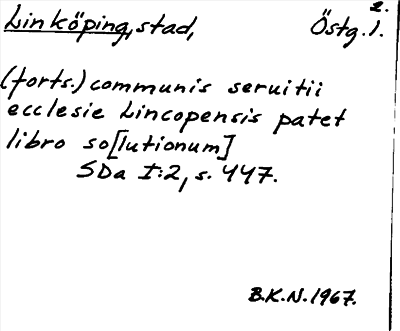 2.
Linköping, stad, Östg. l.
(forts.) communis seruitii
ecclesie Lincopensis patet
libro so[lutionum]
SDa I:2, s. 447.
B.K.N. 1967.